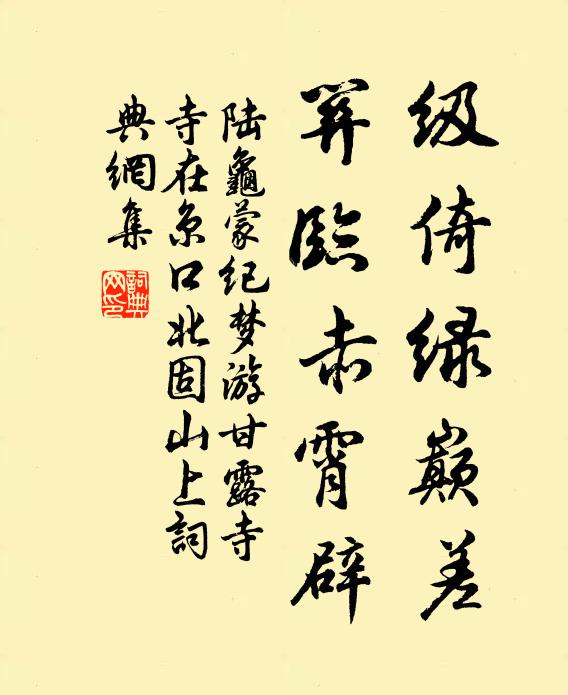 级倚绿巅差
关臨赤霄辟
陆龜蒙纪梦游甘露寺
寺在京口北固山上詞
典網集
詞典
网印